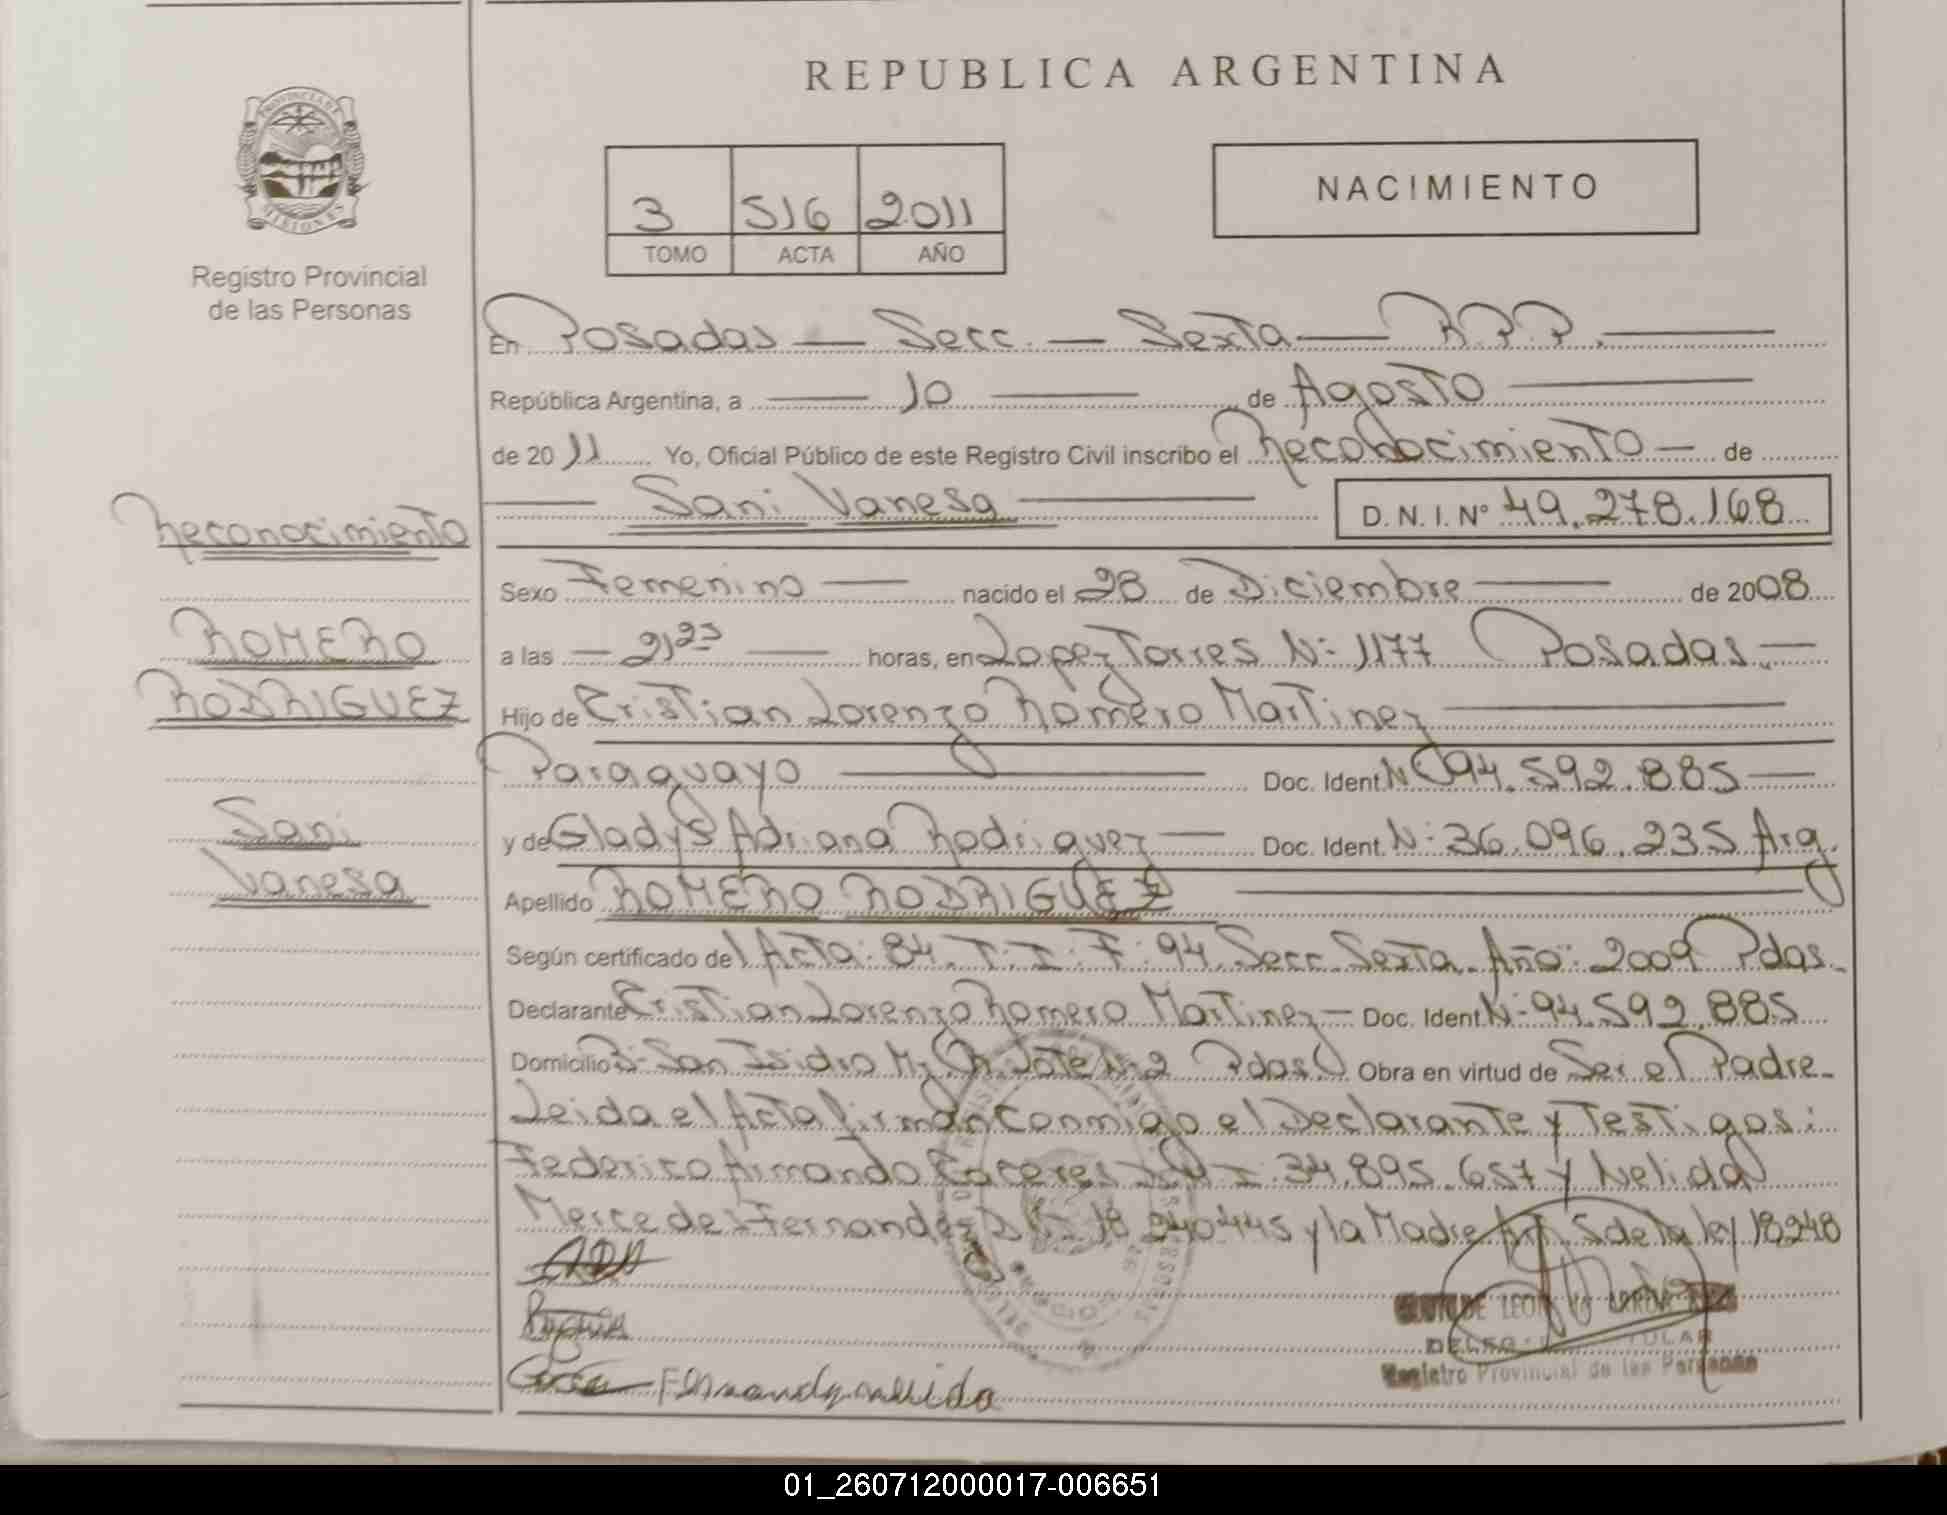 REPUBLICA ARGENTINA
PROVINCIA DE MISIONES
Registro Provincial
de las Personas
3 516 2011
TOMO ACTA AÑO
NACIMIENTO
En Posadas — Secc. — Sexta — R.P.P. —
República Argentina, a — 10 — de Agosto —
de 2011 Yo, Oficial Público de este Registro Civil inscribo el Reconocimiento — de
— Sani Vanesa — D.N.I. Nº 49.278.168
Sexo Femenino — nacido el 28 de Diciembre — de 2008
a las — 21²⁵ — horas, en Lopez Torres Nº 1177 Posadas. —
Hijo de Cristian Lorenzo Romero Martinez —
Paraguayo — Doc. Ident. Nº 94.592.885 —
y de Gladys Adriana Rodriguez — Doc. Ident. Nº 36.096.235 Arg.
Apellido ROMERO RODRIGUEZ —
Según certificado del Acta: 84. T: I: F: 94. Secc. Sexta. Año: 2009 Pdas.
Declarante Cristian Lorenzo Romero Martinez — Doc. Ident. Nº 94.592.885
Domicilio Bº San Isidro Mz Lote Nº 2 Pdas. Obra en virtud de Ser el Padre.
Leida el Acta firman conmigo el Declarante y Testigos:
Federico Armando Caceres 34.895.657 y Nelida
Mercedes Fernandez 18.240445 y la Madre Art. 5 de la ley 18248
Reconocimiento
ROMERO
RODRIGUEZ
Sani
Vanesa
Fernandez nelida
Registro Provincial de las Personas
01_260712000017-006651